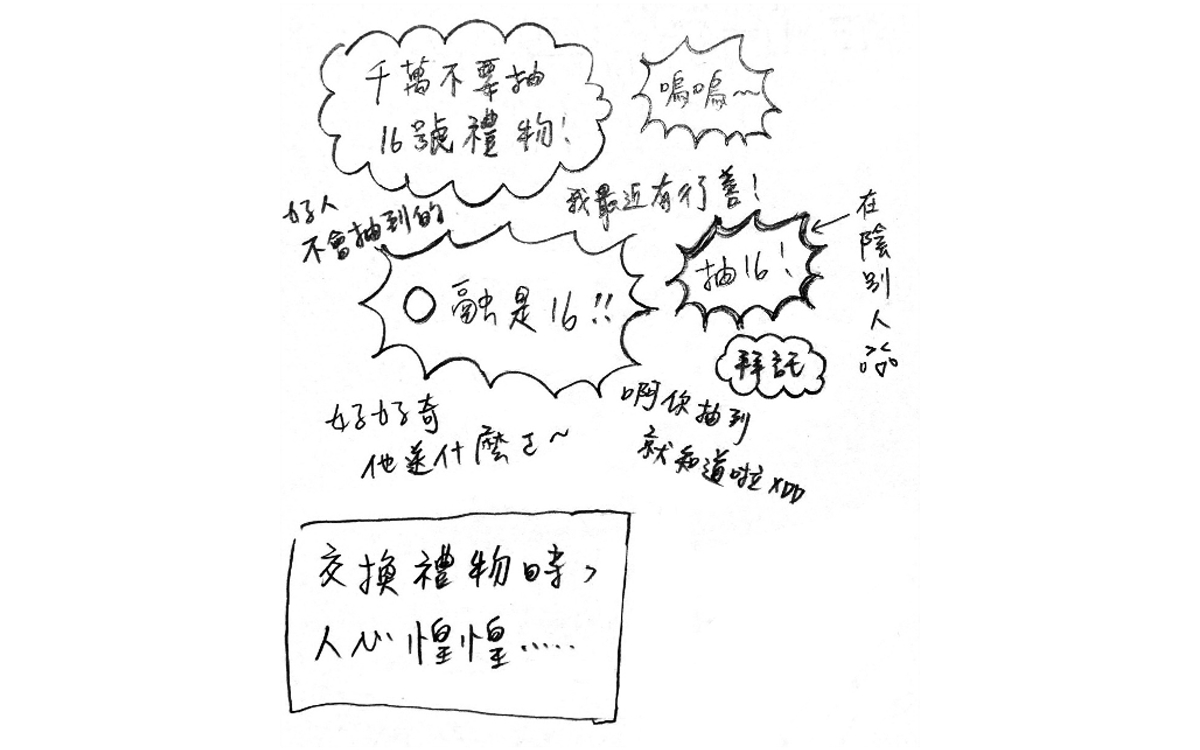 千萬不要抽
16號禮物!
嗚嗚~
好人
不會抽到的
我最近有行善!
在陰別人
抽16!
○融是16!!
拜託
好好奇
他送什麼ㄛ~
啊你抽到
就知道啦XDD
交換禮物時,
人心惶惶.....